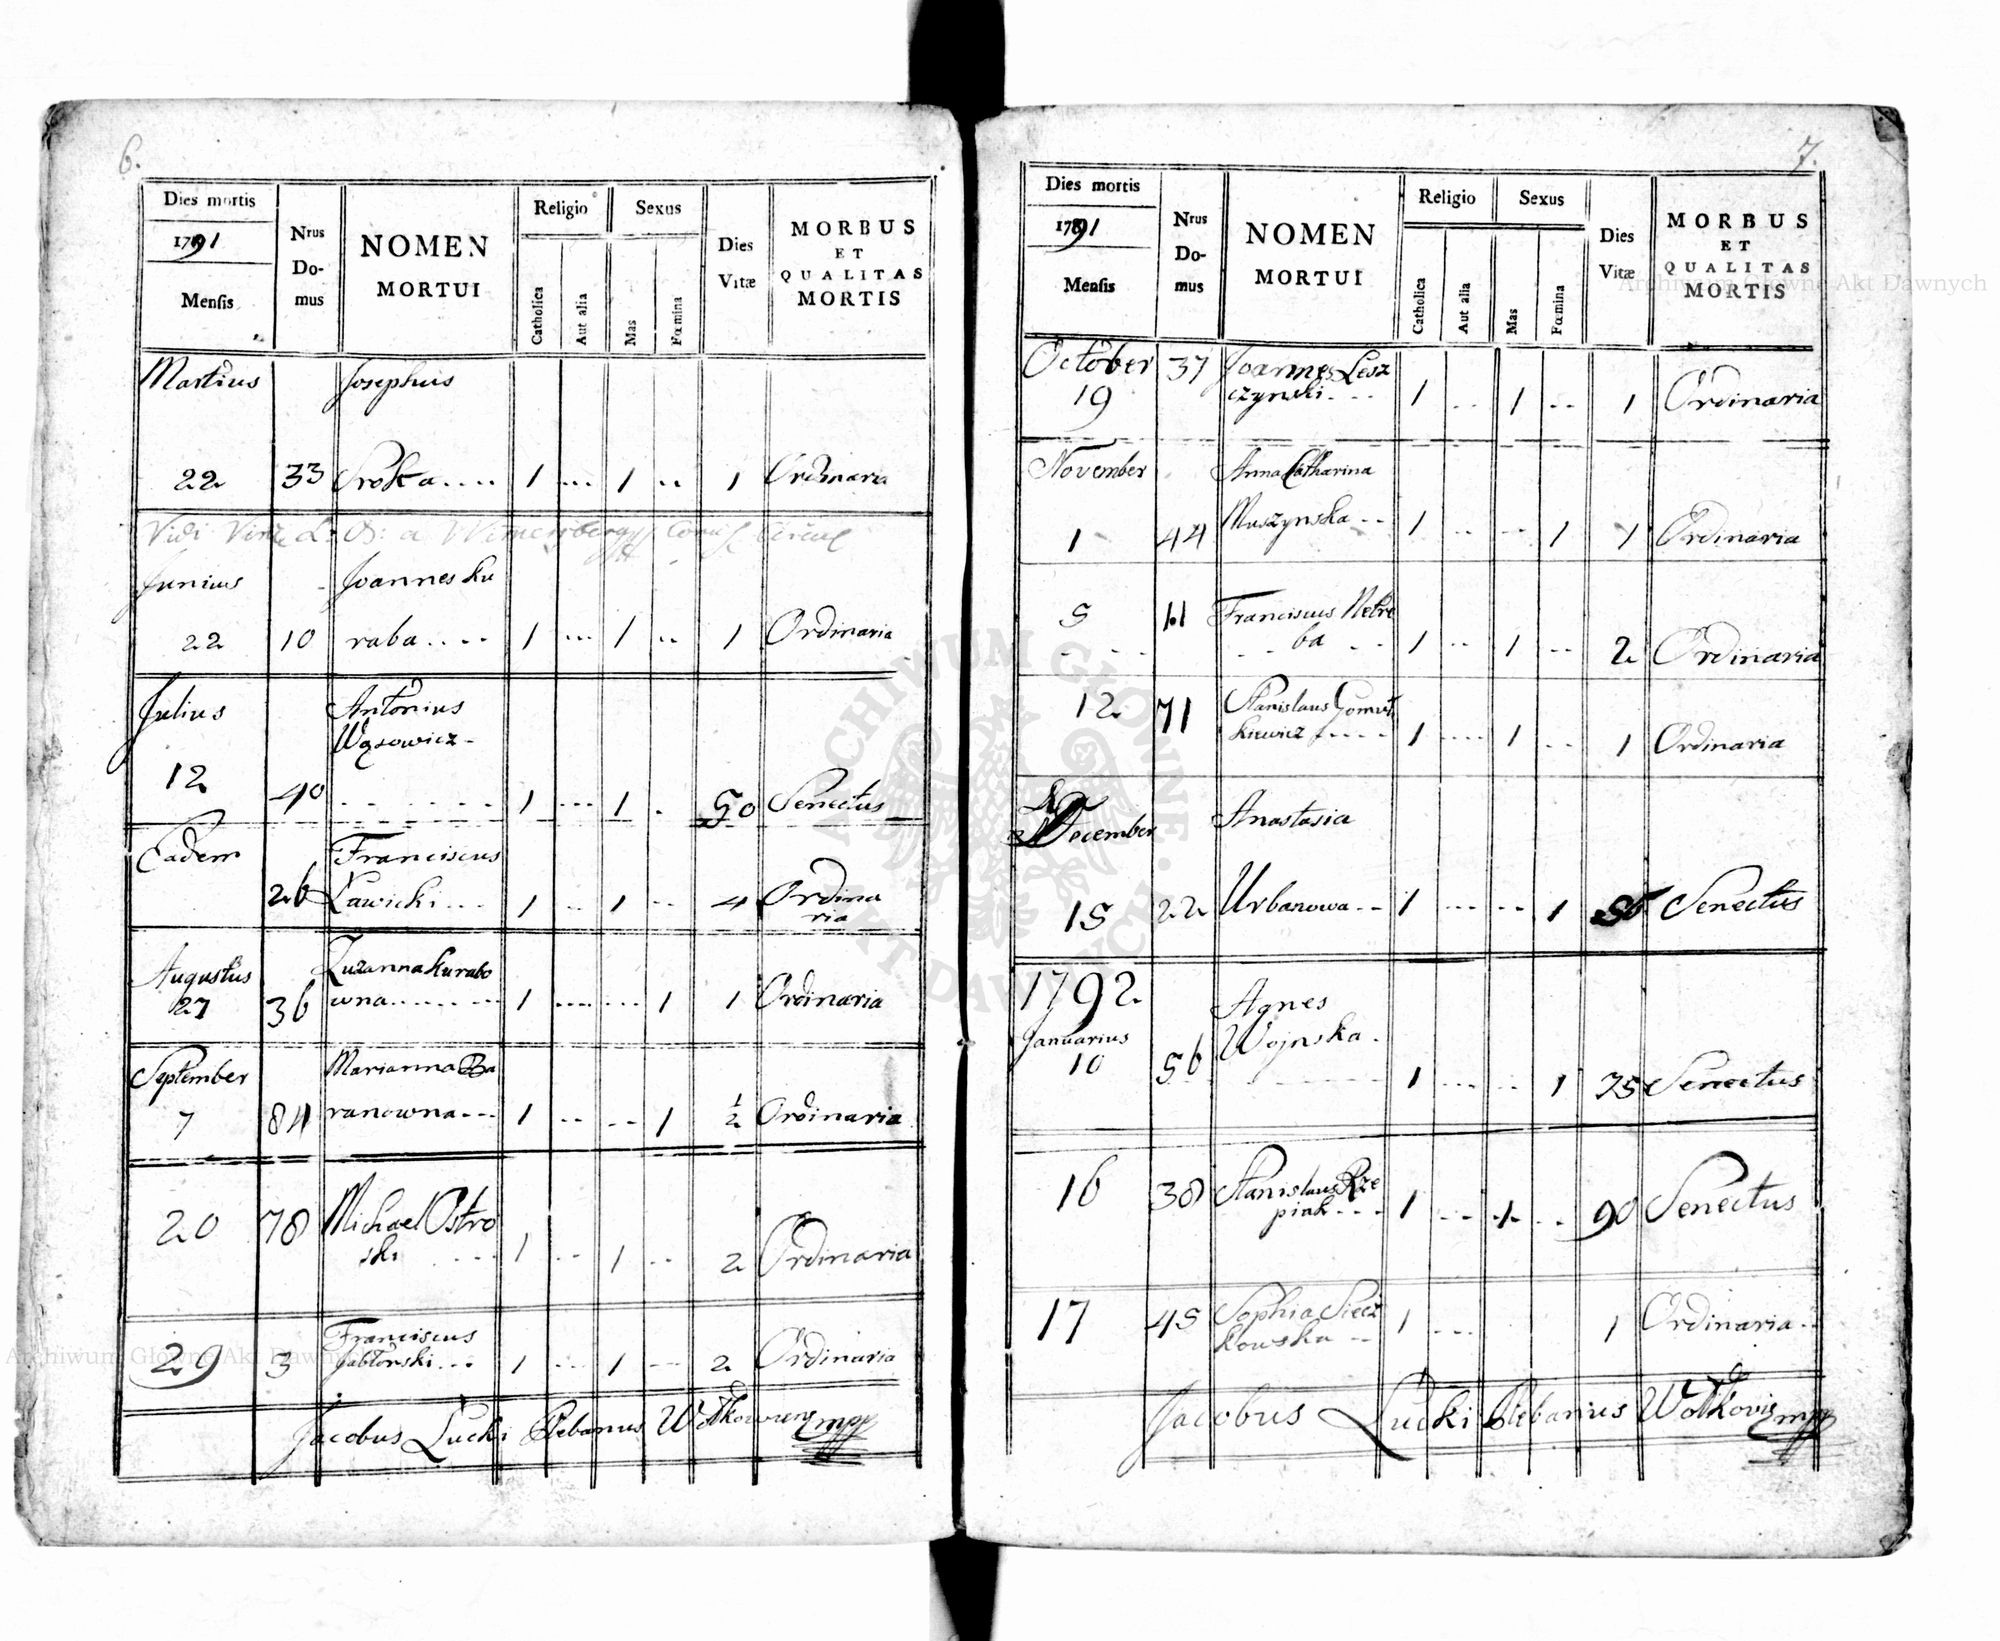 6.
Dies mortis
1791
Mensis
Nrus Do-mus
NOMEN MORTUI
Religio
Catholica
Aut alia
Sexus
Mas
Fœmina
Dies Vitæ
MORBUS ET QUALITAS MORTIS
Martius Josephus
22 33 Sroka.... 1 ... 1 .. 1 Ordinaria
Vidi
Junius Joannes Ku
22 10 raba.... 1 ... 1 .. 1 Ordinaria
Julius Antonius
Wąsowicz-
12
40 - - - - - - 1 --- 1 - 50 Senectus
Eadem Franciscus
26 Ławicki... 1 .. 1 -- 4 Ordina
ria
Augustus Zuzanna Kurabo
27 36 wna........ 1 .... ... 1 1 Ordinaria
September Marianna Ba
7 84 ranowna--- 1 -- -- 1 ½ Ordinaria
20 78 Michael Ostro
ski ... 1 -- 1 -- 2 Ordinaria
Franciscus
29 3 Jabłonski... 1 --- 1 --- 2 Ordinaria
Jacobus Łucki Plebanus Wołkowiens mpp
7.
Dies mortis
1791
Mensis
Nrus Do-mus
NOMEN MORTUI
Religio
Catholica
Aut alia
Sexus
Mas
Fœmina
Dies Vitæ
MORBUS ET QUALITAS MORTIS
October 37 Joannes Lesz
19 czynski... 1 .. 1 -- 1 Ordinaria
November Anna Catharina
1 44 Muszynska -- 1 -- -- 1 1 Ordinaria
5 11 Franciscus Netre
ba 1 -- 1 -- 2 Ordinaria
12 71 Stanislaus
kiewicz 1 .... 1 -- 1 Ordinaria
December Anastasia
15 22 Urbanowa -- 1 --- -- 1 56 Senectus
1792
Agnes
Januarius Wojnska.
10 56 1 --- -- 1 75 Senectus
16 38 Stanislaus Rze
piak--- 1 --- 1 -- 90 Senectus
17 45 Sophia Siecz
kowska -- 1 --- 1 Ordinaria
Jacobus Łucki Plebanus Wołkovis mpp
Archiwum Główne Akt Dawnych
Archiwum Główne Akt Dawnych
ARCHIWUM GŁÓWNE AKT DAWNYCH